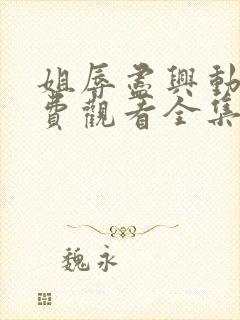 姐辱盡興動
費觀看全集
魏永